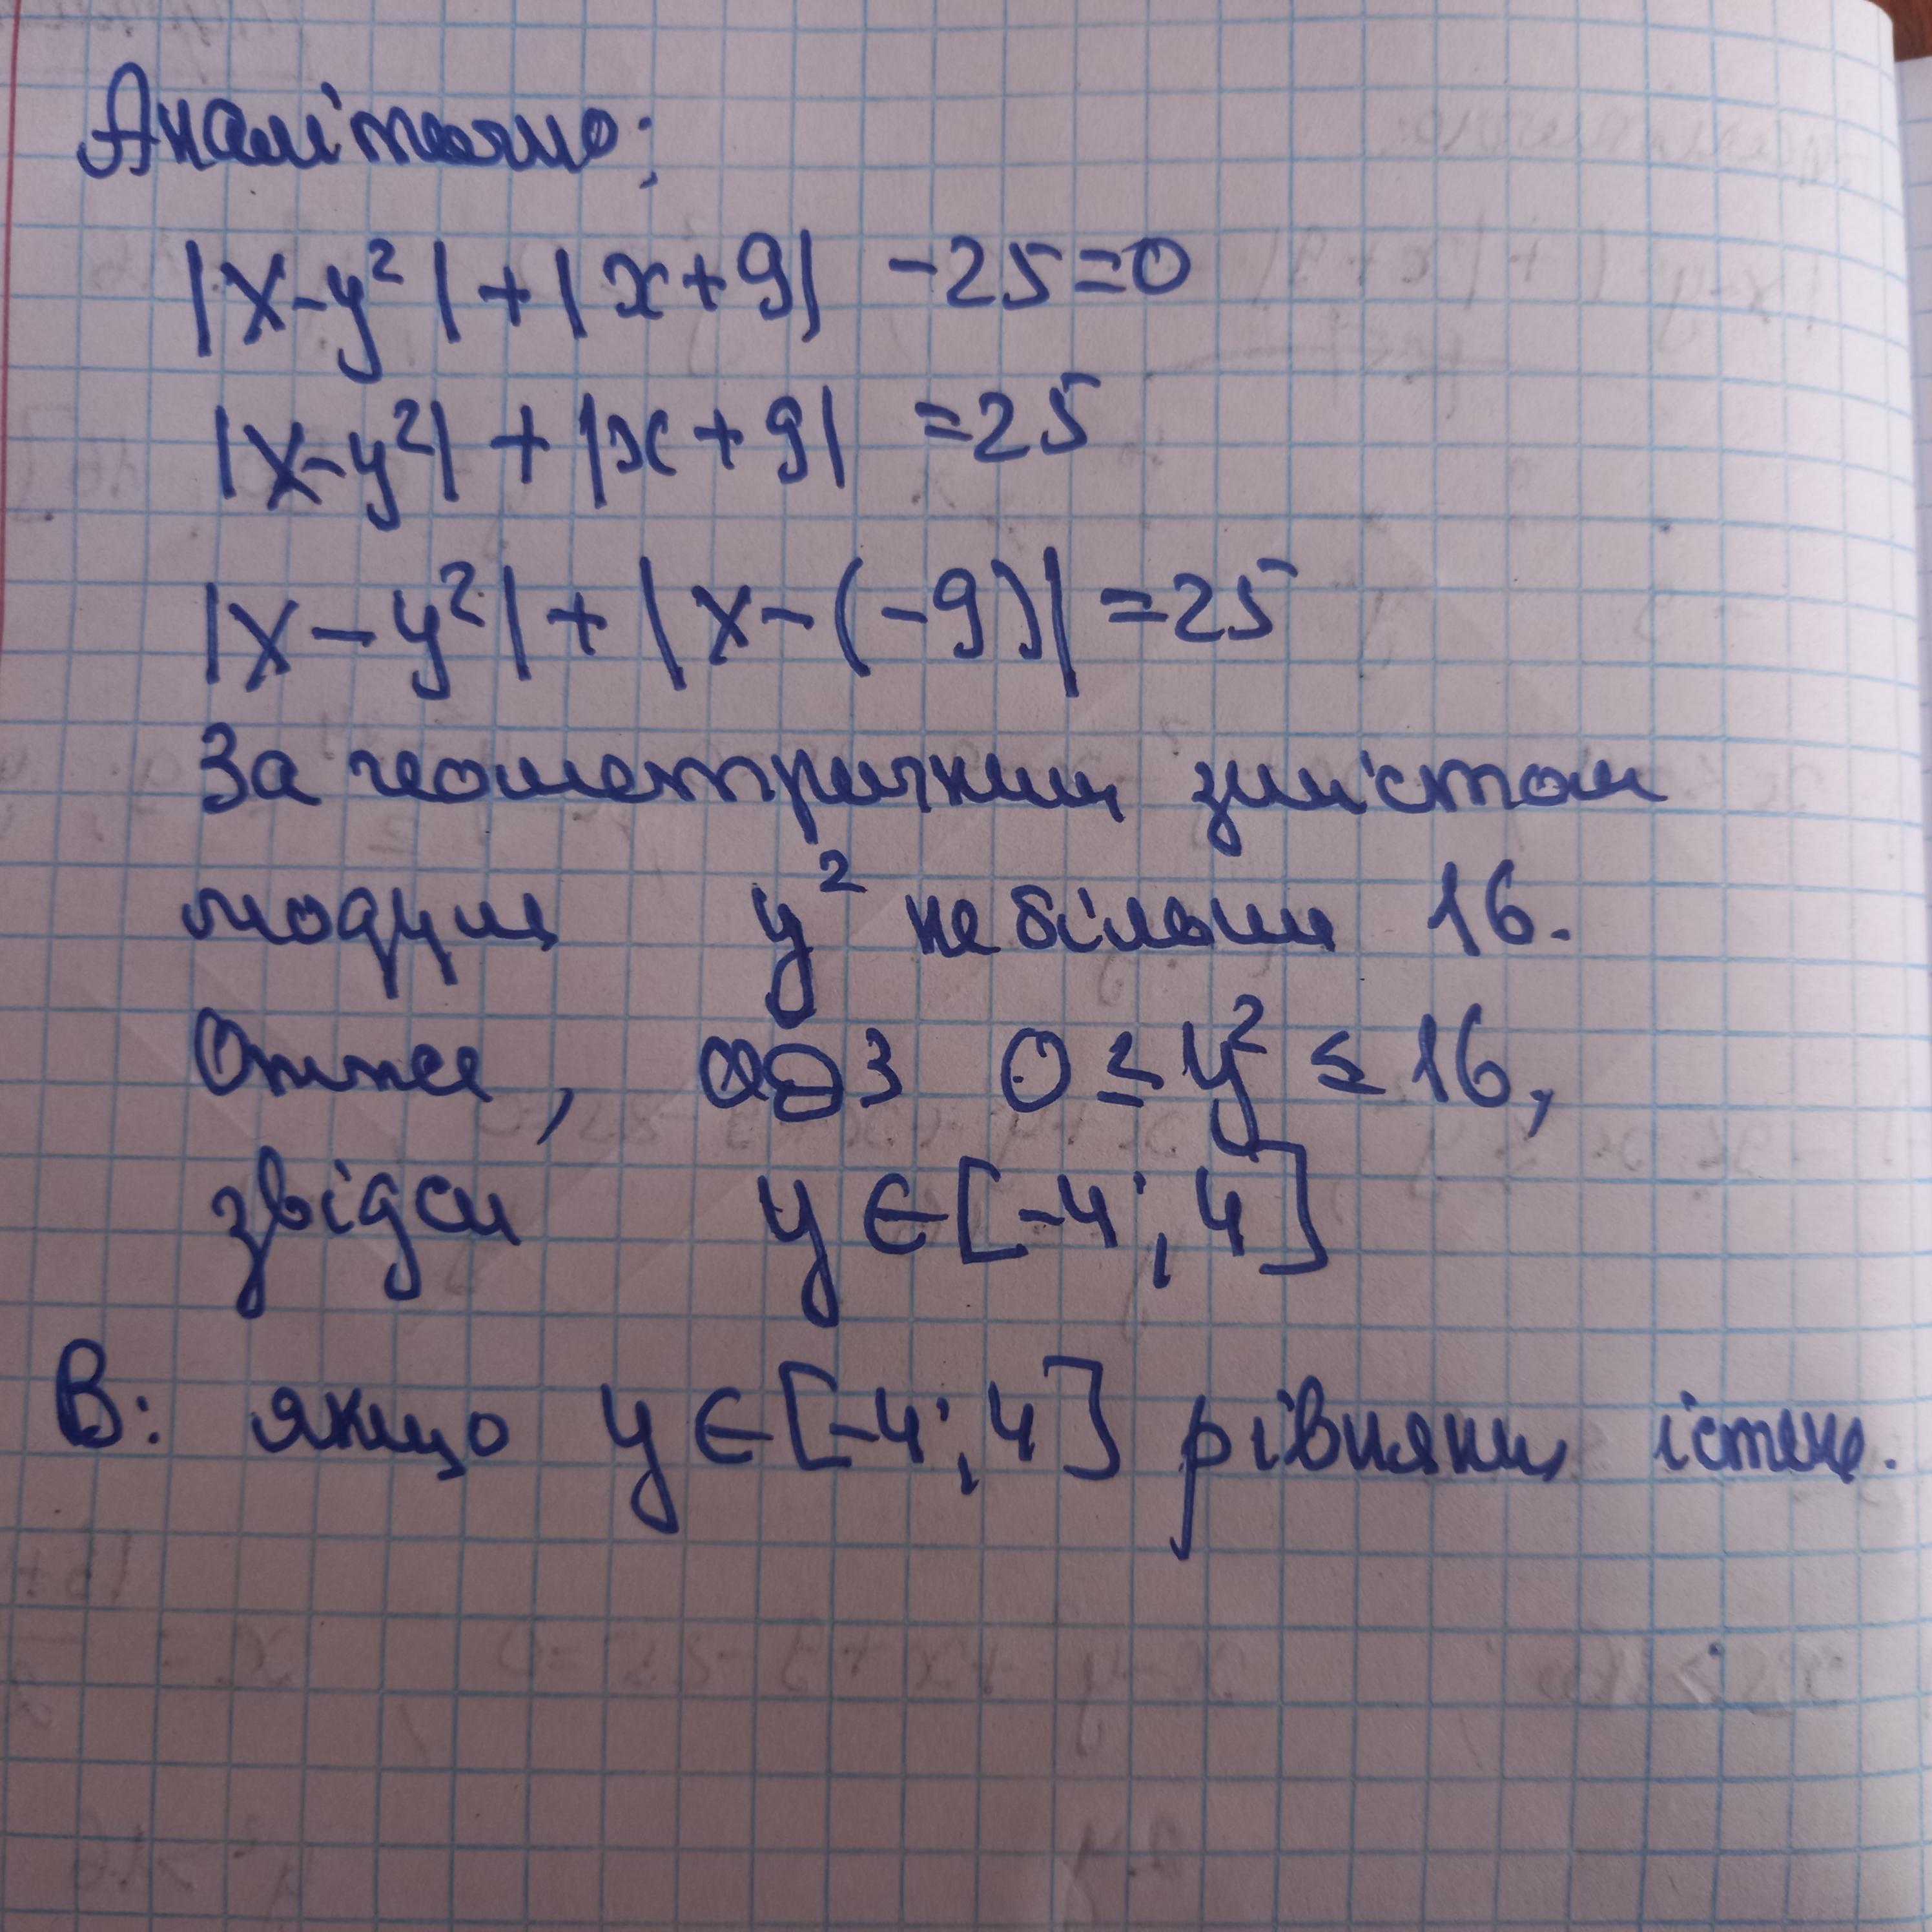 Аналітично:
|x-y²|+|x+9| -25=0
|x-y²|+|x+9| =25
|x-y²|+|x-(-9)|=25
За геометричним змістом
модуля y² не більше 16.
Отже, ОДЗ 0≤y²≤16,
звідси y∈[-4;4]
В: якщо y∈[-4;4] рівняння істине.